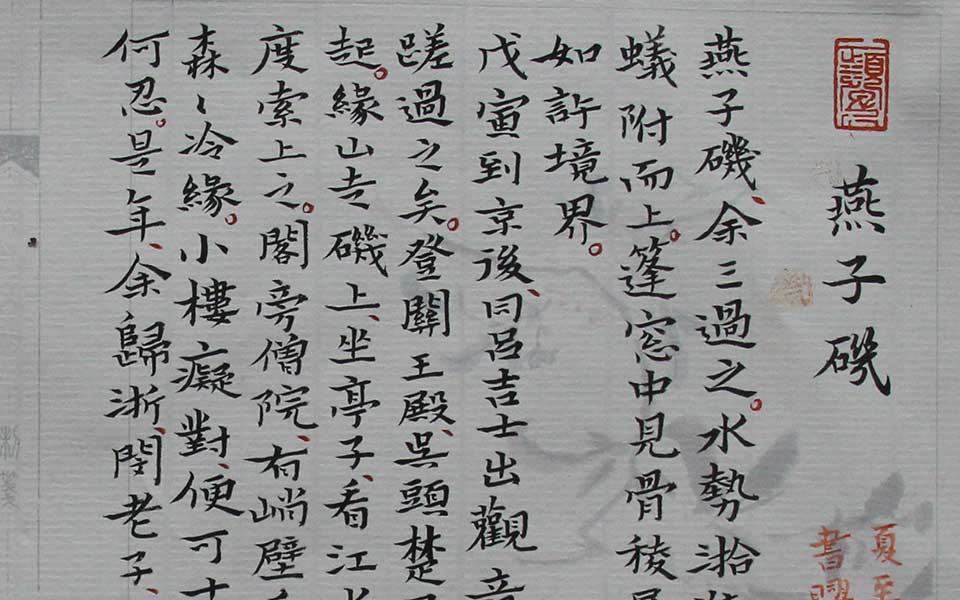 燕子磯
燕子磯、余三過之。水勢湁
蟻附而上。篷窓中見骨稜
如許境界。
戊寅到京後、同呂吉士出觀音
蹉過之矣。登關王殿、吳頭楚
起。緣山走磯上、坐亭子、看江
度索上之。閣旁僧院、有峭壁
森〻冷緣。小樓癡對、便可十
何忍。是年、余歸浙、閔老子、
夏至
書